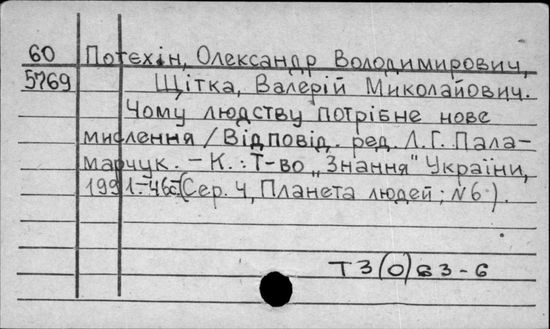 60 Потєхін, Олександр Володимирович,
5769 Щітка, Валерій Миколайович.
Чому людству потрібне нове
мислення / Відповід. ред. Л. Г. Пала-
марчук. – К. : Т-во „Знання" України,
1991. – 46с. (Сер. 4, Планета людей; N6).
Т3(0)63-6